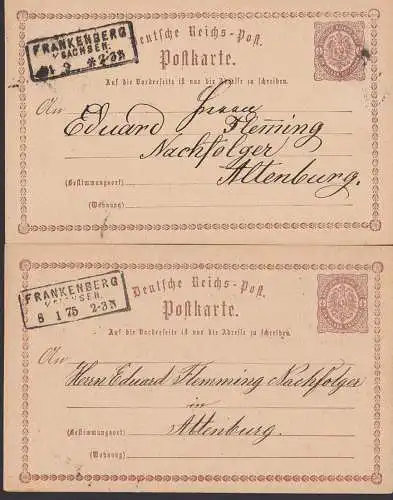 FRANKENBERG
I/SACHSEN.
3 * 2-3N
Deutsche Reichs-Post.
Postkarte.
Auf die Vorderseite ist nur die Adresse zu schreiben.
An Herrn
Eduard Flemming
Nachfolger
(Bestimmungsort) Altenburg.
(Wohnung)
FRANKENBERG
I/SACHSEN.
8 1 75 2-3N
Deutsche Reichs-Post.
Postkarte.
Auf die Vorderseite ist nur die Adresse zu schreiben.
An
Herrn Eduard Flemming Nachfolger
in
(Bestimmungsort) Altenburg.
(Wohnung)